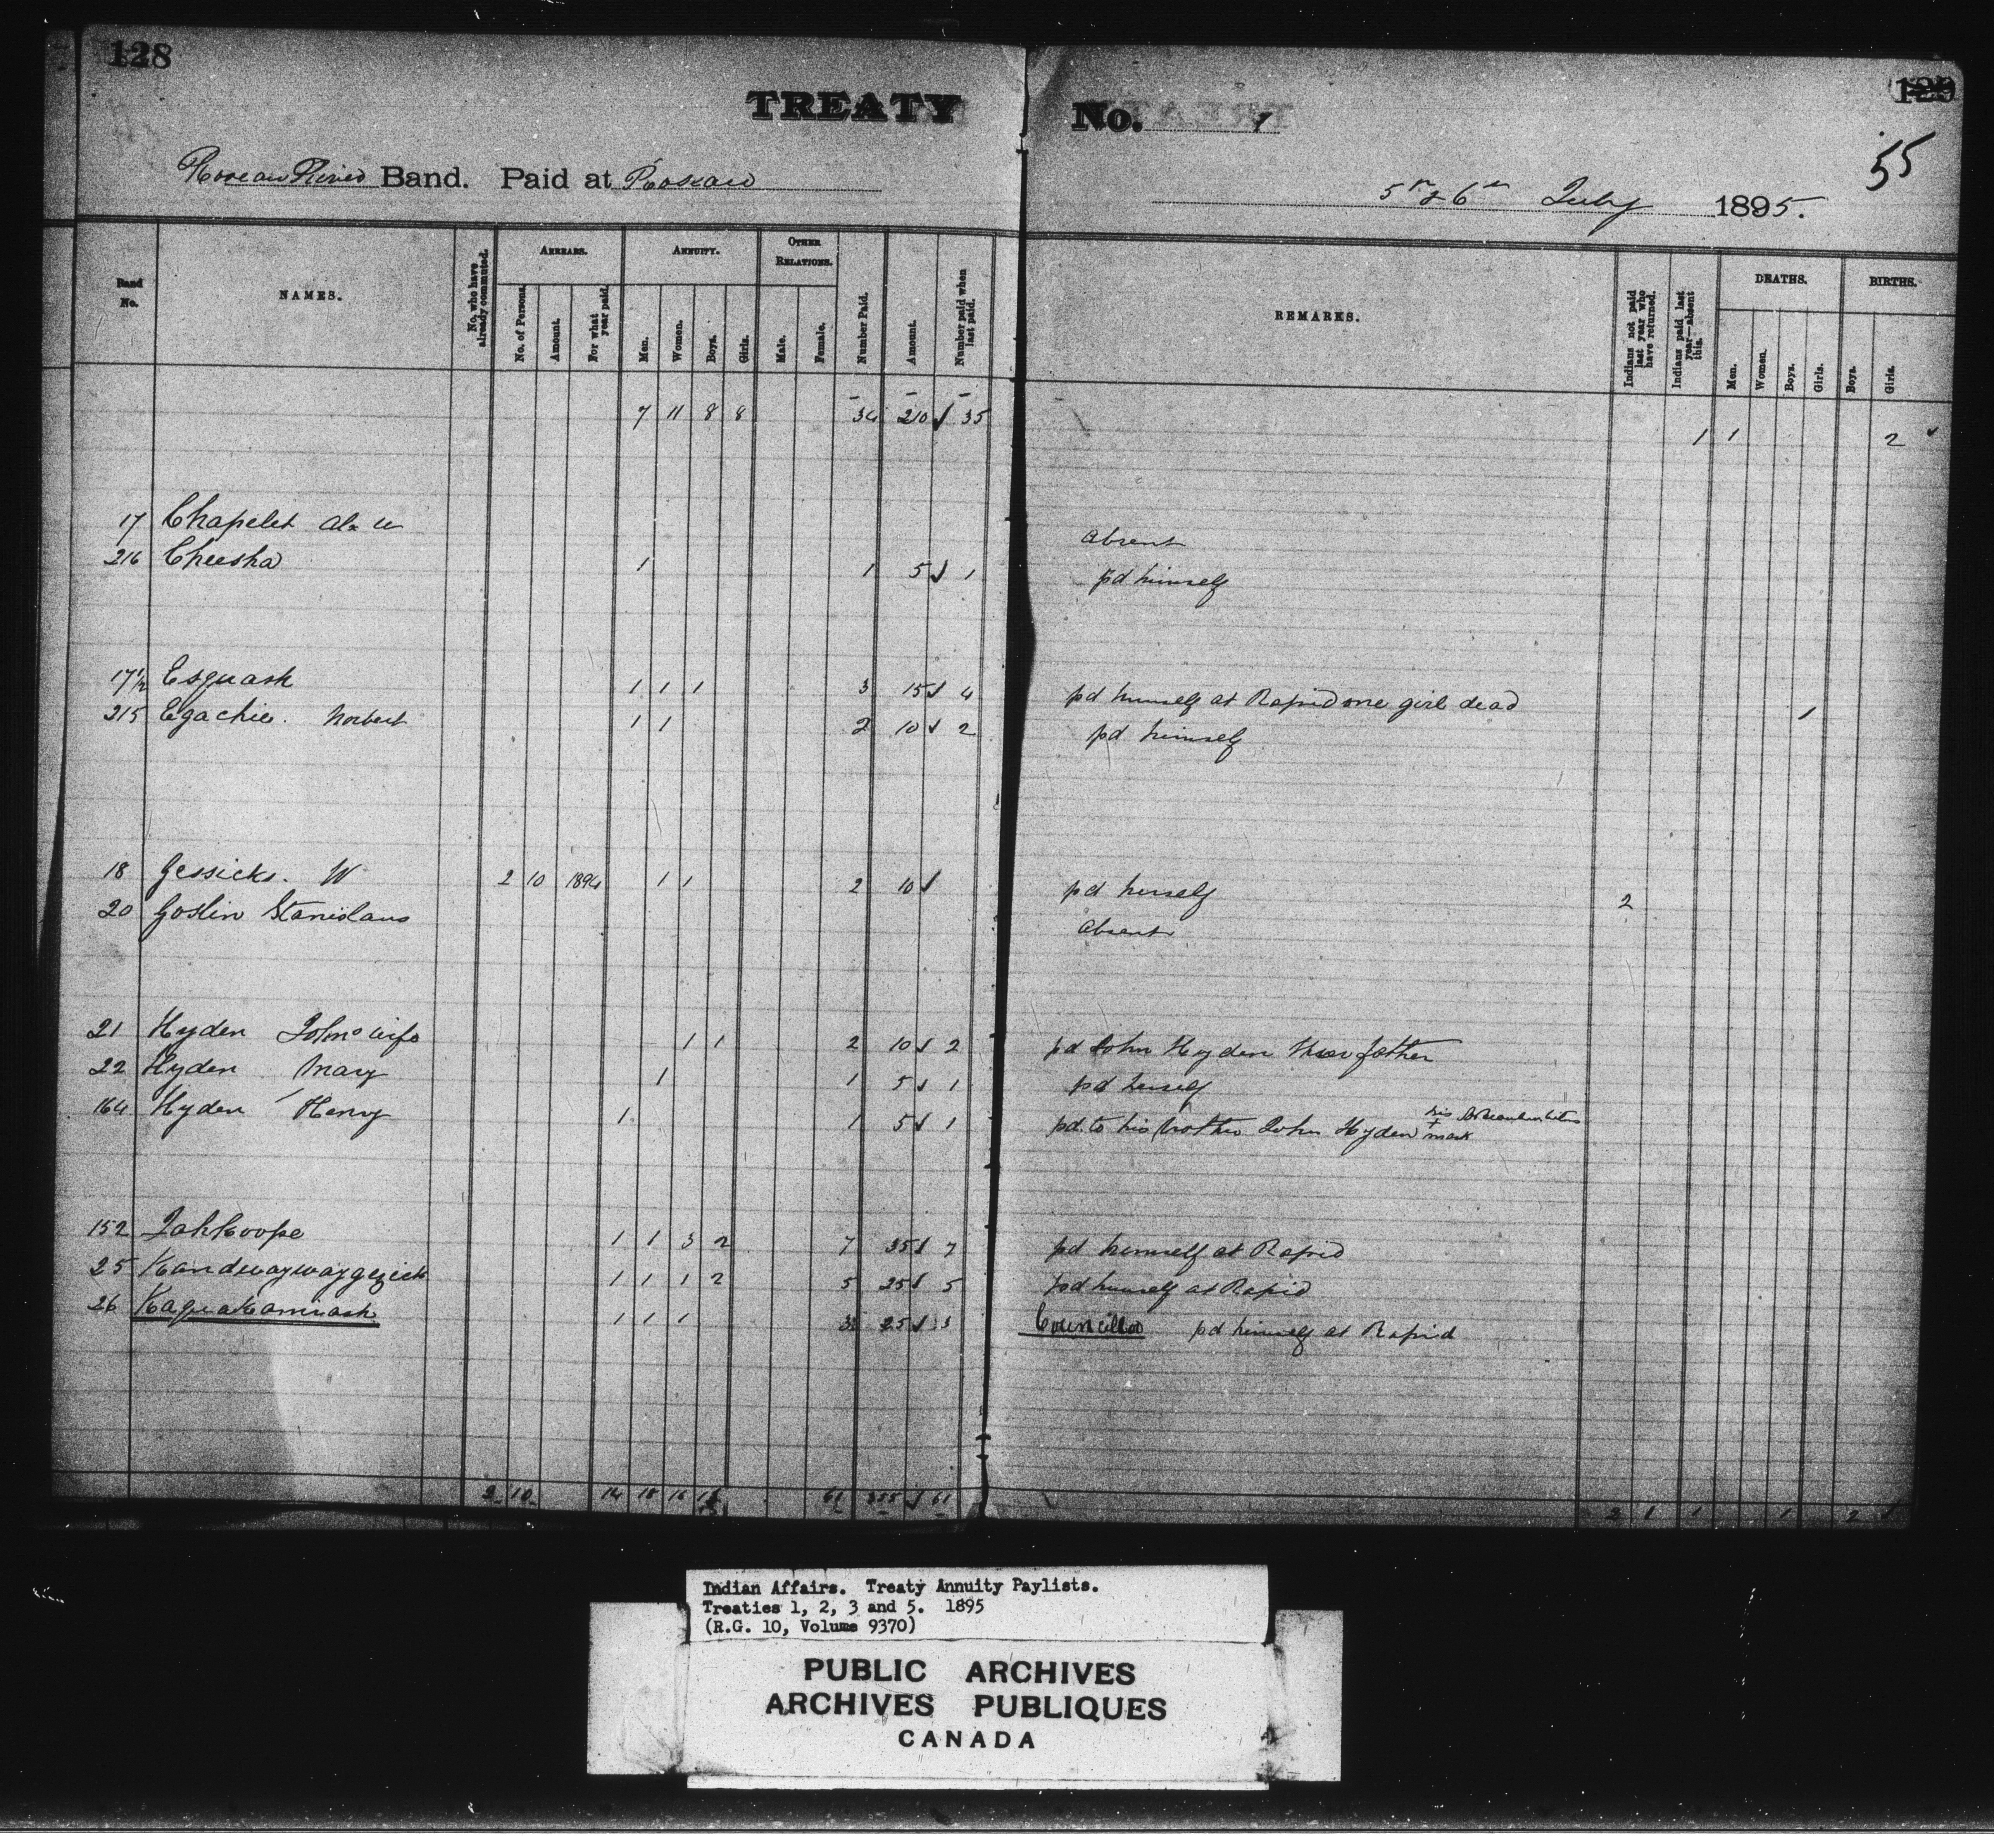 128
TREATY No. 1
129
55
Roseau River Band. Paid at Roseau
5th & 6th July 1895.
Band No. NAMES. No. who have already commuted. ARREARS. No. of Persons. Amount. For what year paid. ANNUITY. Men. Women. Boys. Girls. OTHER RELATIONS. Male. Female. Number Paid. Amount. Number paid when last paid. REMARKS. Indians not paid last year who have returned. Indians paid last year—absent this. DEATHS. Men. Women. Boys. Girls. BIRTHS. Boys. Girls.
7 11 8 8 34 210 ✓ 35 1 1 2 ✓
17 Chapelet Absent
216 Cheesha 1 1 5 ✓ 1 pd himself
17½ Esquash 1 1 1 3 15 ✓ 4 pd himself at Rapid one girl dead 1
215 Egachie. Norbert 1 1 2 10 ✓ 2 pd himself
18 Gessicks. W 2 10 1894 1 1 2 10 ✓ pd herself 2
20 Goslin Stanislaus Absent
21 Hyden John's wife 1 1 2 10 ✓ 2 pd John Hyden father
22 Hyden Mary 1 1 5 ✓ 1 pd herself
164 Hyden Henry 1 1 5 ✓ 1 pd. to his brother John Hyden his + mark
152 Jahkoope 1 1 3 2 7 35 ✓ 7 pd himself at Rapid
25 Kandwaywaygezick 1 1 1 2 5 25 ✓ 5 pd himself at Rapid
26 Kaquakamieash 1 1 1 3 25 ✓ 3 Councillor pd himself at Rapid
2 10 14 18 16 13 61 355 ✓ 61 2 1 1 1 2
Indian Affairs. Treaty Annuity Paylists.
Treaties 1, 2, 3 and 5. 1895
(R.G. 10, Volume 9370)
PUBLIC ARCHIVES
ARCHIVES PUBLIQUES
CANADA